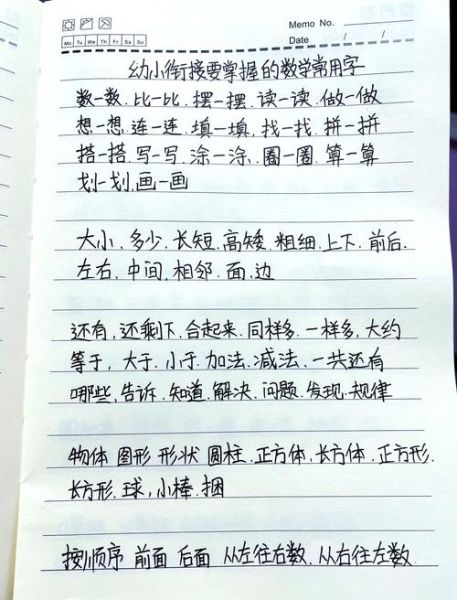 Memo No.
Mo Tu We Th Fr Sa Su
Date / /
幼小衔接要掌握的数学常用字
数一数.比一比.摆一摆.读一读.做一做
想一想.连一连.填一填,找一找.拼一拼
搭一搭.写一写.涂一涂.圈一圈.算一算
划一划.画一画
大小.多少.长短.高矮.粗细.上下.前后.
左右.中间.相邻.面.边
还有,还剩下.合起来.同样多.一样多,大约
等于,大于.小于.加法.减法.一共还有
哪些,告诉.知道.解决.问题.发现.规律
物体 图形 形状 圆柱.正方体,长方体.正方形.
长方形.球,小棒.捆
按顺序 前面 后面 从左往右数.从右往左数